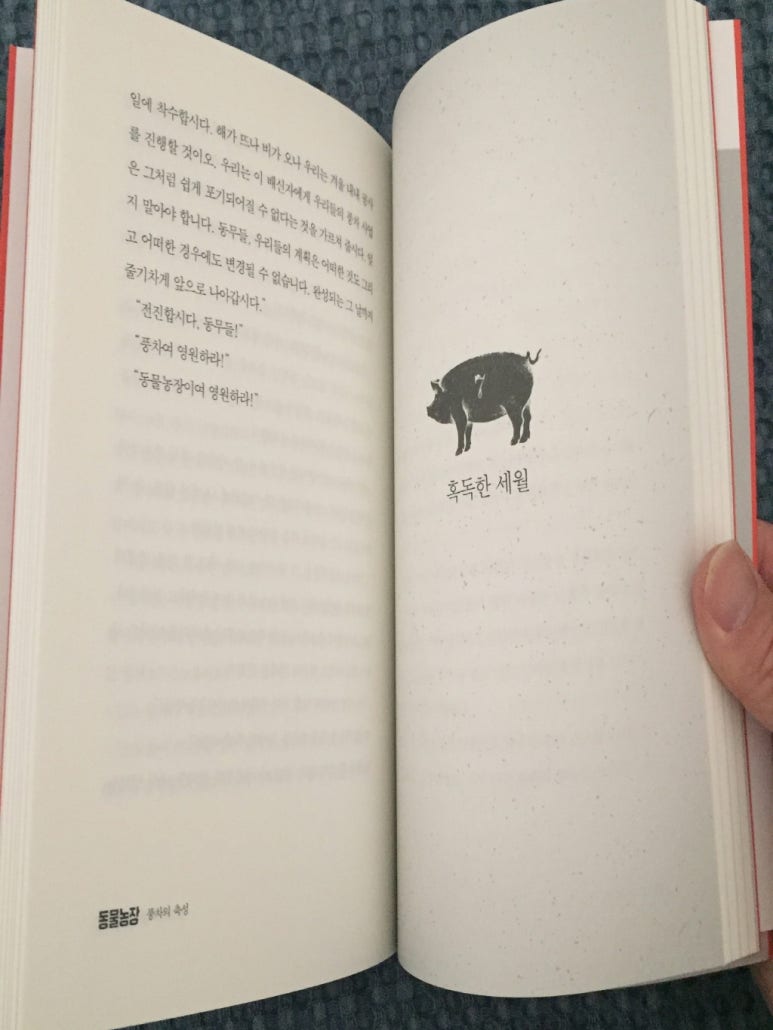 일에 착수합시다. 해가 뜨나 비가 오나 우리는 겨울 내내 공사
를 진행할 것이오. 우리는 이 배신자에게 우리들의 풍차 사업
은 그처럼 쉽게 포기되어질 수 없다는 것을 가르쳐 줍시다. 잊
지 말아야 합니다. 동무들, 우리들의 계획은 어떠한 것도 그리
고 어떠한 경우에도 변경될 수 없습니다. 완성되는 그 날까지
줄기차게 앞으로 나아갑시다."
"전진합시다, 동무들!"
"풍차여 영원하라!"
"동물농장이여 영원하라!"
동물농장 풍차의 축성
7
혹독한 세월